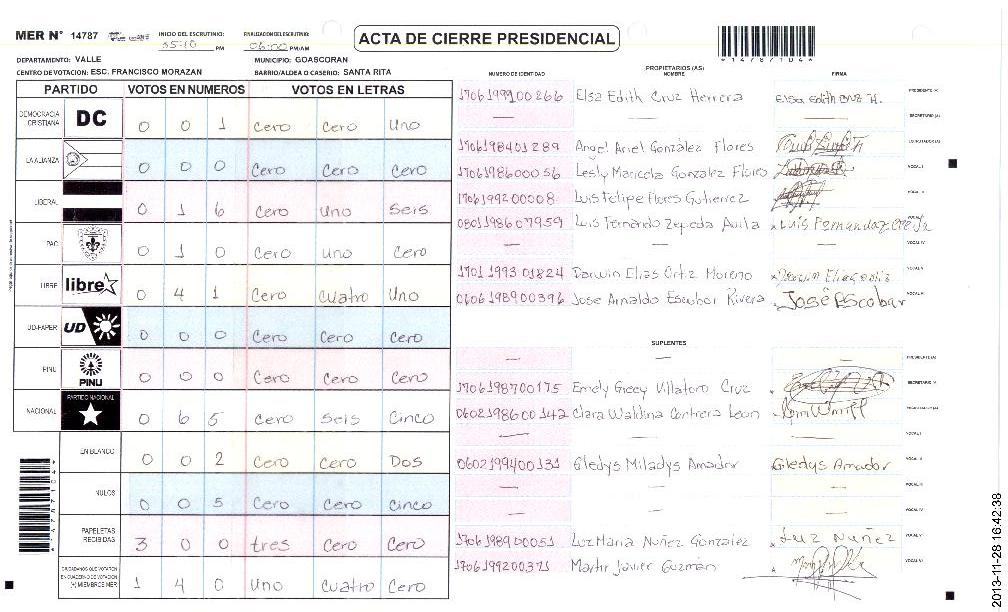 MER N° 14787
INICIO DEL ESCRUTINIO: 05:10 PM
FINALIZACION DEL ESCRUTINIO: 06:00 PM/AM
ACTA DE CIERRE PRESIDENCIAL
*14787104*
DEPARTAMENTO: VALLE MUNICIPIO: GOASCORAN
CENTRO DE VOTACION: ESC. FRANCISCO MORAZAN BARRIO/ALDEA O CASERIO: SANTA RITA
PARTIDO VOTOS EN NUMEROS VOTOS EN LETRAS
DEMOCRACIA CRISTIANA DC 0 0 1 Cero Cero Uno
LA ALIANZA 0 0 0 Cero Cero Cero
LIBERAL 0 1 6 Cero Uno Seis
PAC 0 1 0 Cero Uno Cero
LIBRE libre 0 4 1 Cero Cuatro Uno
UD-FAPER UD 0 0 0 Cero Cero Cero
PINU PINU 0 0 0 Cero Cero Cero
NACIONAL PARTIDO NACIONAL 0 6 5 Cero Seis Cinco
EN BLANCO 0 0 2 Cero Cero Dos
NULOS 0 0 5 Cero Cero Cinco
PAPELETAS RECIBIDAS 3 0 0 tres Cero Cero
CIUDADANOS QUE VOTARON EN CUADERNO DE VOTACION (+) MIEMBROS MER 1 4 0 Uno Cuatro Cero
PROPIETARIOS (AS)
NUMERO DE IDENTIDAD NOMBRE FIRMA
1706199100266 Elsa Edith Cruz Herrera Elsa Edith Cruz H. PRESIDENTE (A)
— — — SECRETARIO (A)
1706198401289 Angel Ariel González Flores ESCRUTADOR (A)
1706198600056 Lesly Maricela Gonzalez Flores VOCAL I
1706199200008 Luis Felipe Flores Gutierrez
0801198607959 Luis Fernando Zepeda Avila
— — — VOCAL IV
1701199301824 Darwin Elias Ortiz Moreno VOCAL V
0606198900396 Jose Arnaldo Escobar Rivera José Escobar
SUPLENTES
— — — PRESIDENTE (A)
1706198700175 Emely Greey Villatoro Cruz SECRETARIO (A)
0602198600142 Clara Waldina Contrera Leon
— — — VOCAL I
0602199400131 Gledys Miladys Amador Gledys Amador VOCAL II
— — — VOCAL III
— — — VOCAL IV
1706198900051 Luz Maria Nuñez Gonzalez Luz Nuñez VOCAL V
1706199200371 Martir Javier Guzmán VOCAL VI
2013-11-28 16:42:38